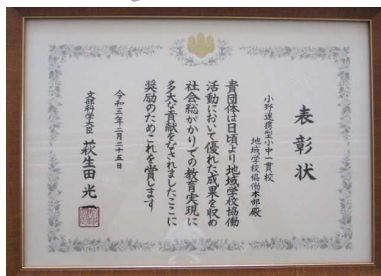 表彰状
小野連携型小中一貫校
地域学校協働本部殿
貴団体は日頃より地域学校協働
活動において優れた成果を収め
社会総がかりでの教育実現に
多大な貢献をなされましたここに
奨励のためこれを賞します
令和三年二月二十五日
文部科学大臣 萩生田光一